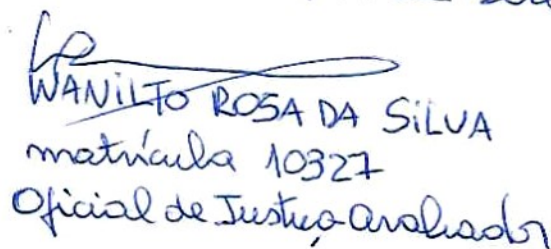 WANILTO ROSA DA SILVA
matrícula 10327
Oficial de Justiça Avaliador